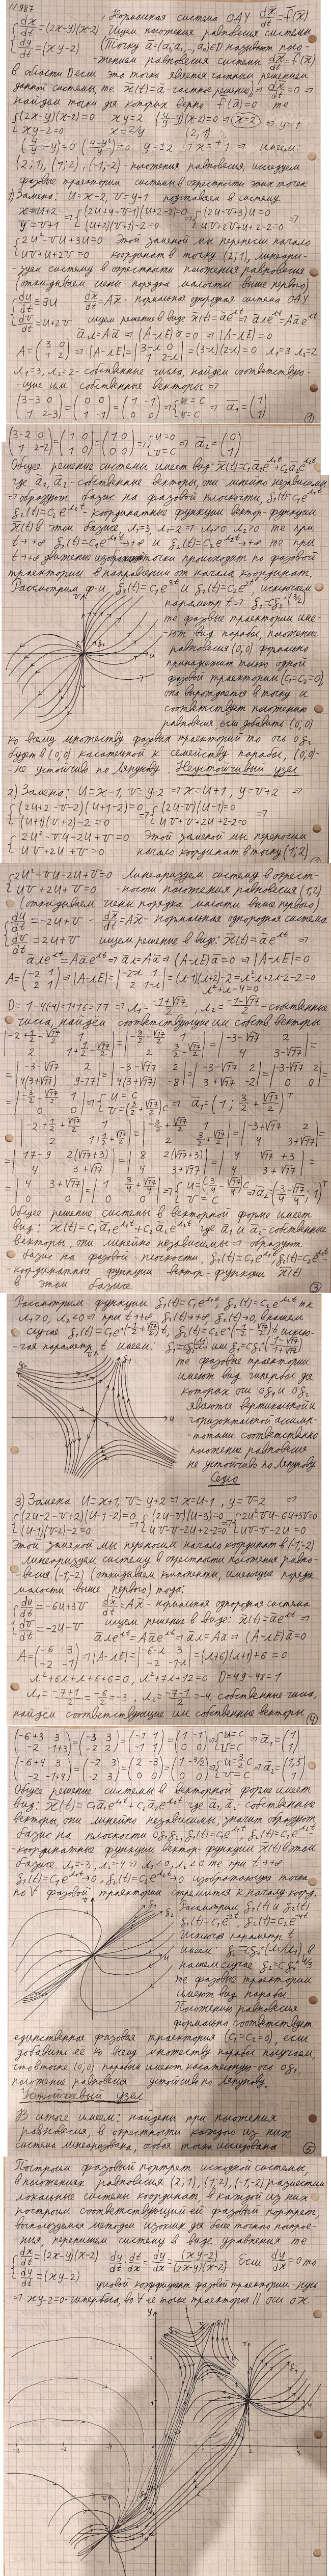 N 987
{dx/dt = (2x-y)(x-2) , Нормальная система ОДУ dx/dt = f(x)
{dy/dt = (xy-2) Ищем положения равновесия системы
(Точку a = (a1, a2, ..., an) ∈ D называют поло-
жением равновесия системы dx/dt = f(x)
в области D если эта точка является частным решением
данной системы, те x(t) = a - частное решение) ⇒ dx/dt = 0 ⇒
найдем точки для которых верно f(a) = 0 те
{(2x-y)(x-2)=0 xy=2 (4/y-y)(x-2)=0 ⇒ x=2 ⇒ y=1
xy-2=0 x=2/y (2;1)
y=±2 ⇒ x=±1 ⇒ имеем:
(2;1), (1;2), (-1,-2) - положения равновесия, исследуем
фазовые траектории системы в окрестности этих точек
1) Замена: U=x-2, V=y-1 подставляем в систему
{x=u+2 ⇒ {(2u+4-v-1)(u+2-2)=0 ⇒ {(2u-v+3)u=0 ⇒
{y=v+1 {(u+2)(v+1)-2=0 {uv+2v+u+2-2=0
{2u²-vu+3u=0 Этой заменой мы перенесли начало
{uv+u+2v=0 координат в точку (2,1), линеари-
зуем систему в окрестности положения равновесия
(откидываем члены порядка малости выше первого)
{du/dt = 3u dx/dt = Ax - нормальная однородная система ОДУ
{dv/dt = u+2v ищем решение в виде: x(t) = ae^λt ⇒ aλe^λt = Aae^λt
aλ = Aa ⇒ (A-λE)a = 0 ⇒ |A-λE| = 0
A = (3 0 / 1 2) ⇒ |A-λE| = |3-λ 0 / 1 2-λ| = (3-λ)(2-λ) = 0 λ1=3 λ2=2
λ1=3, λ2=2 - собственные числа, найдем соответствую-
щие им собственные векторы ⇒
(3-3 0 / 1 2-3) = (0 0 / 1 -1) = (1 -1 / 0 0) ⇒ {u=c / v=c ⇒ a1 = (1 / 1)
①
(3-2 0 / 1 2-2) = (1 0 / 1 0) = (1 0 / 0 0) ⇒ {u=0 / v=c ⇒ a2 = (0 / 1)
Общее решение системы имеет вид: x(t) = C1a1e^λ1t + C2a2e^λ2t
где a1, a2 - собственные векторы, они линейно независимы
⇒ образуют базис на фазовой плоскости, ξ1(t) = C1e^λ1t
ξ2(t) = C2e^λ2t - координатные функции вектор-функции
x(t) в этом базисе. λ1=3, λ2=2 ⇒ λ1>0 λ2>0 те при
t→+∞ ξ1(t) = C1e^λ1t → ∞ и ξ2(t) = C2e^λ2t → ∞ те при
t→+∞ движение происходит по фазовой
траектории в направлении от начала координат.
Рассмотрим ф-и ξ1(t) = C1e^3t и ξ2(t) = C2e^2t, исключаем
параметр t ⇒ ξ1 = Cξ2^(3/2)
те фазовые траектории име-
ют вид парабол, положение
равновесия (0,0) формально
принадлежит только одной
фазовой траектории (C1=C2=0),
она вырождается в точку и
соответствует положению
равновесия если добавить (0,0)
ко всему множеству фазовых траекторий то ось oξ2
будет в (0,0) касательной к семейству парабол, (0,0)-
-не устойчиво по Ляпунову. Неустойчивый узел
2) Замена: U=x-1, V=y-2 ⇒ x=u+1, y=v+2 ⇒
{(2u+2-v-2)(u+1-2)=0 ⇒ {(2u-v)(u-1)=0 ⇒
{(u+1)(v+2)-2=0 {uv+v+2u+2-2=0
{2u²-vu-2u+v=0 Этой заменой мы переносим
{uv+2u+v=0 начало координат в точку (1,2)
{2u²-vu-2u+v=0 Линеаризуем систему в окрест-
{uv+2u+v=0 ности положения равновесия (1,2)
(откидываем члены порядка малости выше первого)
{du/dt = -2u+v dx/dt = Ax - нормальная однородная система
{dv/dt = 2u+v ищем решение в виде: x(t) = ae^λt ⇒
aλe^λt = Aae^λt ⇒ aλ = Aa ⇒ (A-λE)a = 0 ⇒ |A-λE| = 0
A = (-2 1 / 2 1) ⇒ |A-λE| = |-2-λ 1 / 2 1-λ| = (λ-1)(λ+2)-2 = λ²+λ-2-2=0
λ²+λ-4=0
D = 1-4(-4) = 1+16 = 17 ⇒ λ1 = (-1+√17)/2, λ2 = (-1-√17)/2 - собственные
числа, найдём соответствующие им собств векторы
Общее решение системы в векторной форме имеет
вид: x(t) = C1a1e^λ1t + C2a2e^λ2t где a1 и a2 - собственные
векторы, они линейно независимы ⇒ образуют
базис на фазовой плоскости ξ1(t) = C1e^λ1t, ξ2(t) = C2e^λ2t-
-координатные функции вектор-функции x(t)
в этом базисе.
③
Рассмотрим функции ξ1(t) = C1e^λ1t, ξ2(t) = C2e^λ2t тк
λ1>0, λ2<0 ⇒ при t→+∞ ξ1(t)→∞ ξ2(t)→0 в нашем
случае ξ1(t) = C1e^(-1/2+√17/2)t, ξ2(t) = C2e^(-1/2-√17/2)t исклю-
чая параметр t имеем:
те фазовые траектории
имеют вид гипербол для
которых оси oξ1 и oξ2
являются вертикальной и
горизонтальной асимп-
тотами соответственно
положение равновесия
не устойчиво по Ляпунову
Седло
3) Замена U=x+1, V=y+2 ⇒ x=u-1, y=v-2 ⇒
{(2u-2-v+2)(u-1-2)=0 ⇒ {(2u-v)(u-3)=0 ⇒ {2u²-uv-6u+3v=0
{(u-1)(v-2)-2=0 {uv-v-2u+2-2=0 {uv-v-2u=0
Этой заменой мы переносим начало координат в (-1,-2)
линеаризуем систему в окрестности положения равно-
-весия (-1,-2) (откидываем компоненты, имеющие порядок
малости выше первого) тогда:
{du/dt = -6u+3v dx/dt = Ax - нормальная однородная система
{dv/dt = -2u-v ищем решение в виде: x(t) = ae^λt ⇒
aλe^λt = Aae^λt ⇒ aλ = Aa ⇒ (A-λE)a = 0
A = (-6 3 / -2 -1) ⇒ |A-λE| = |-6-λ 3 / -2 -1-λ| = (λ+6)(λ+1)+6 = 0
λ²+6λ+λ+6+6=0, λ²+7λ+12=0 D=49-48=1
λ1 = (-7+1)/2 = -6/2 = -3 λ2 = (-7-1)/2 = -4, собственные числа,
найдем соответствующие им собственные векторы
④
(-6+3 3 / -2 -1+3) = (-3 3 / -2 2) = (-1 1 / -1 1) = (1 -1 / 0 0) ⇒ {u=c / v=c ⇒ a1 = (1 / 1)
(-6+4 3 / -2 -1+4) = (-2 3 / -2 3) = (2 -3 / 0 0) = (1 -3/2 / 0 0) ⇒ {u=3/2c / v=c ⇒ a2 = (1,5 / 1)
Общее решение системы в векторной форме имеет
вид: x(t) = C1a1e^λ1t + C2a2e^λ2t где a1, a2 - собственные
векторы, они линейно независимы, значит образуют
базис на плоскости oξ1ξ2, ξ1(t) = C1e^λ1t, ξ2(t) = C2e^λ2t
координатные функции вектор-функции x(t) в этом
базисе λ1=-3, λ2=-4 ⇒ λ1<0, λ2<0 те при t→+∞
ξ1(t) = C1e^λ1t→0, ξ2(t) = C2e^λ2t→0 изображающая точка
по ∀ фазовой траектории стремится к началу коорд.
Рассмотрим ξ1(t) и ξ2(t)
ξ1(t) = C1e^-3t, ξ2(t) = C2e^-4t
Исключая параметр t
имеем: ξ2 = Cξ1^(λ2/λ1), в
нашем случае ξ2 = Cξ1^4/3
те фазовые траектории
имеют вид парабол.
Положению равновесия
формально соответствует
единственная фазовая траектория (C1=C2=0), если
добавить её ко всему множеству парабол получаем,
что в точке (0,0) параболы имеют касательную - ось oξ1,
положение равновесия устойчиво по Ляпунову.
Устойчивый узел
В итоге имеем: найдены три положения
равновесия, в окрестности каждого из них
система линеаризована, особая точка исследована
⑤
Построим фазовый портрет исходной системы,
в положениях равновесия (2,1), (1,2), (-1,-2) разместим
локальные системы координат в каждой из них
построим соответствующий ей фазовый портрет,
воспользуемся методом изоклин для более точного построе-
-ния, перепишем систему в виде уравнения те
{dx/dt = (2x-y)(x-2) dy/dt · dt/dx = dy/dx = (xy-2)/((2x-y)(x-2)) если dy/dx = 0 то
{dy/dt = (xy-2) угловой коэффициент фазовой траектории - нуль
⇒ xy-2=0 - гипербола, в ∀ её точке траектория || оси ox.